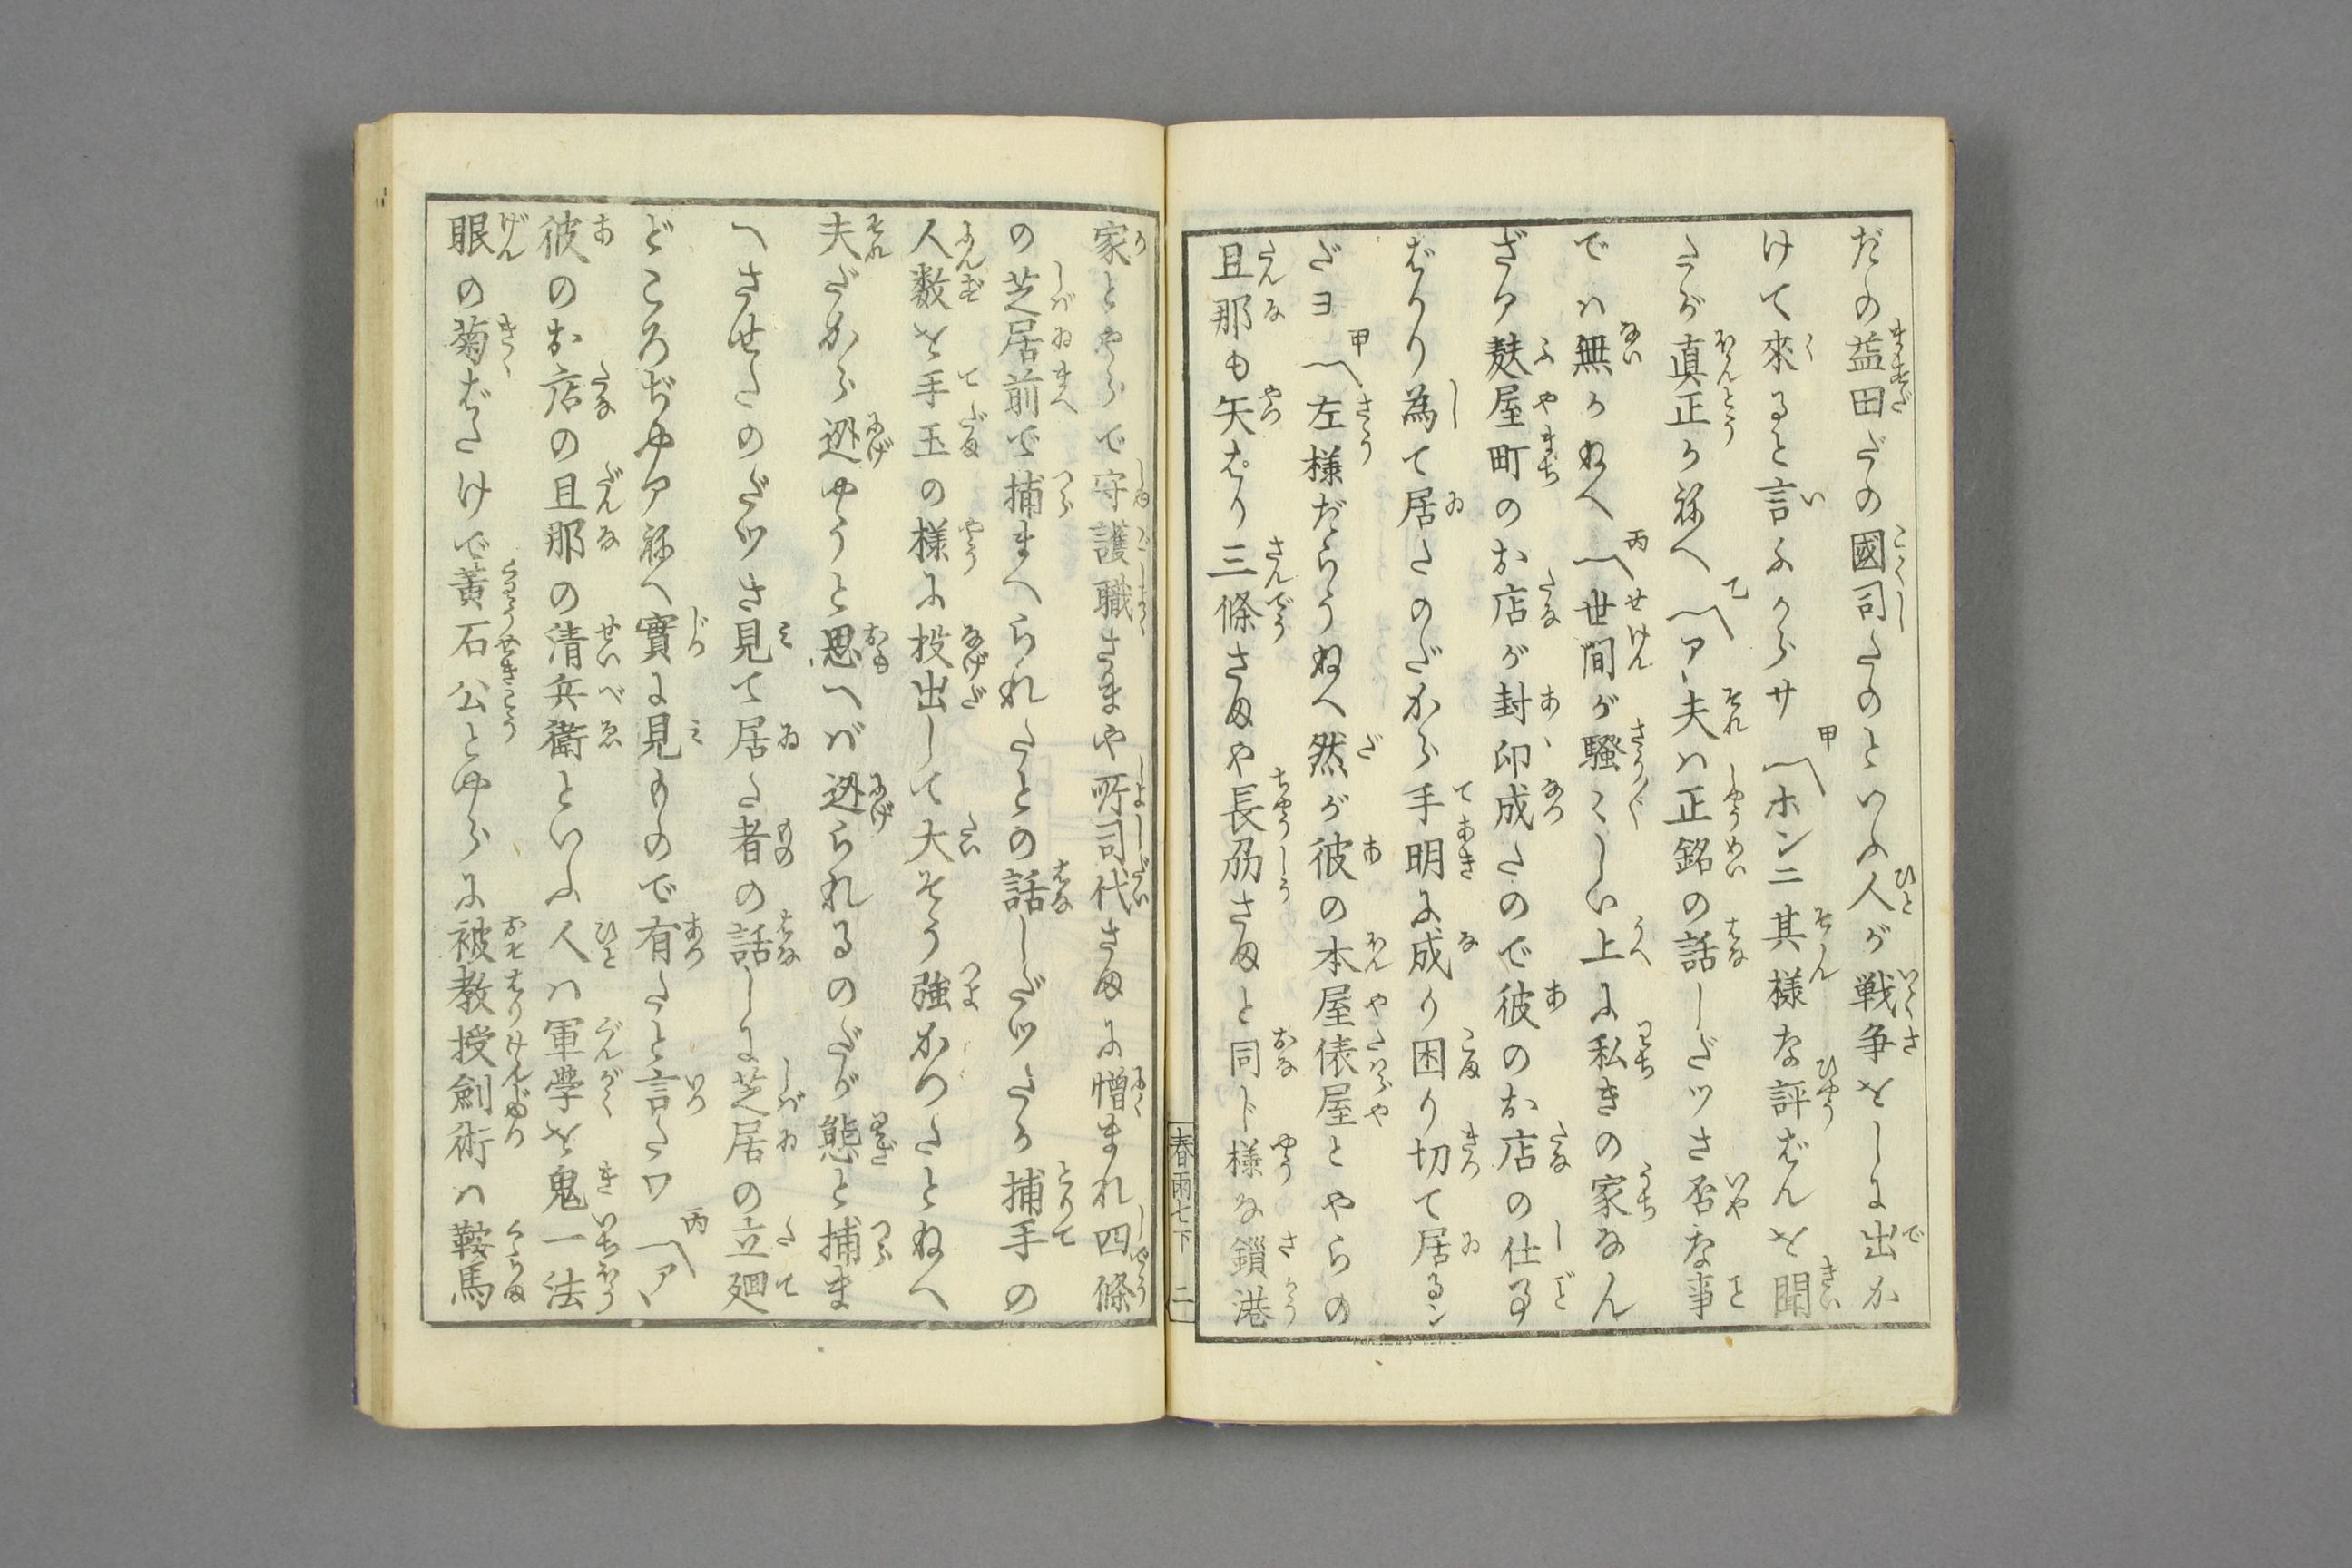 だの益田だの國司たのといふ人が戦争をしに出か
けて來ると言ふからサ 甲〽ホンニ其樣な評ばんを聞
たが真正か祢へ 乙〽アヽ夫ハ正銘の話しだツさ否な事
でハ無かねへ 丙〽世間が騒〳〵しい上に私きの家なん
ざア麸屋町のお店が封印成たので彼のお店の仕事
ばかり為て居たのだから手明に成り困り切て居るン
ダヨ 甲〽左様だらうねへ然が彼の本屋俵屋とやらの
旦那も矢はり三條さまや長刕さまと同ド様な鎖港
家とやらで守護職さまや所司代さまに憎まれ四條
の芝居前で捕まへられたとの話しだツたか捕手の
人数を手玉の様に投出して大そう強かつたとねへ
夫だから迯やうと思へバ迯られるのだが態と捕ま
へさせたのだツさ見て居た者の話しに芝居の立廻
どころぢやア祢へ實に見ものて有たと言たワ 丙〽アヽ
彼のお店の旦那の清兵衛といふ人ハ軍學を鬼一法
眼の菊ばたけで黄石公とやらに被教授劍術ハ鞍馬
春雨七下 二